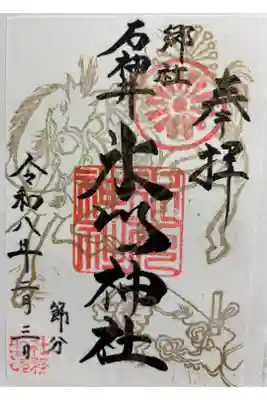 奉拝
郷社
石神井
氷川神社
節分
令和八年二月三日